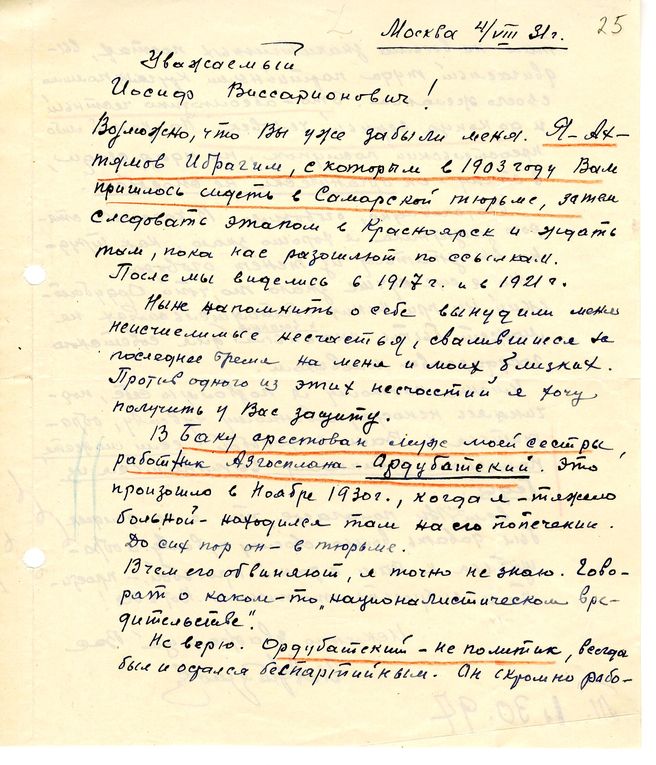 25
Москва 4/VIII 31г.
Уважаемый
Иосиф Виссарионович!
Возможно, что Вы уже забыли меня. Я - Ах-
тямов Ибрагим, с которым в 1903 году Вам
пришлось сидеть в Самарской тюрьме, затем
следовать этапом в Красноярск и ждать
там, пока нас разошлют по ссылкам.
После мы виделись в 1917г. и в 1921г.
Ныне напомнить о себе вынудили меня
неисчислимые несчастья, свалившиеся за
последнее время на меня и моих близких.
Против одного из этих несчастий я хочу
получить у Вас защиту.
В Баку арестован муж моей сестры,
работник Азгосплана - Ордубатский. Это
произошло в Ноябре 1930г., когда я - тяжело
больной - находился там на его попечении.
До сих пор он - в тюрьме.
В чем его обвиняют, я точно не знаю. Гово-
рят о каком-то „националистическом вре-
дительстве".
Не верю. Ордубатский - не политик, всегда
был и остался беспартийным. Он скромно рабо-